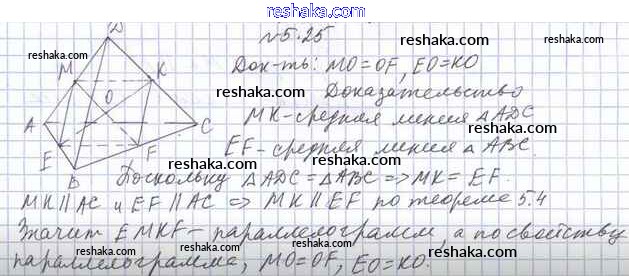 reshaka.com
N 5.25
D
reshaka.com
reshaka.com
Док-ть: MO=OF, EO=KO
M
K
reshaka.com
Доказательство
O
MK-средняя линия △ADC
A
C
reshaka.com
reshaka.com
EF-средняя линия △ABC.
E
F
B
Поскольку △ADC=△ABC => MK=EF.
reshaka.com
reshaka.com
MK||AC и EF||AC => MK||EF по теореме 5.4
reshaka.com
reshaka.com
Значит EMKF-параллелограмм, а по свойству
параллелограмма, MO=OF, EO=KO.
reshaka.com
reshaka.com